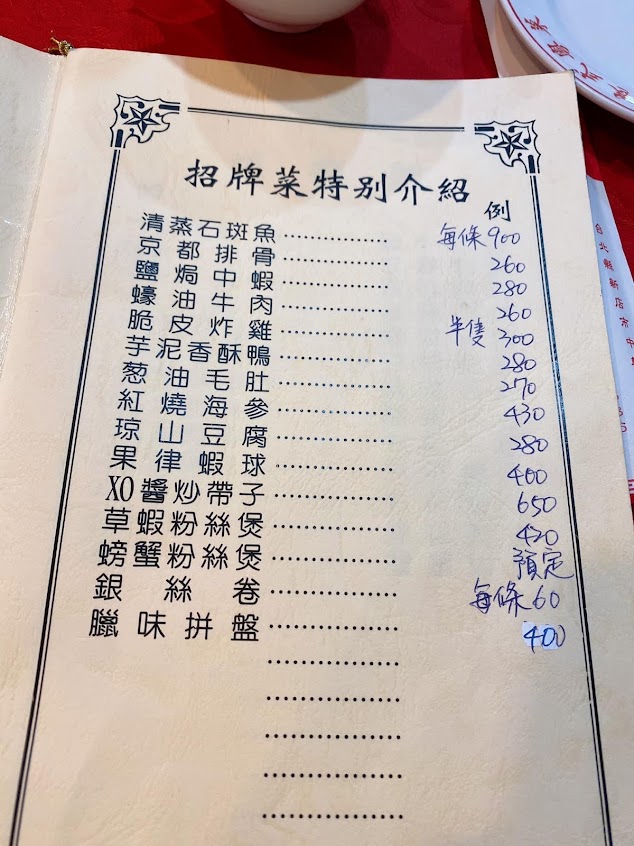 招牌菜特別介紹
例
清蒸石斑魚 每條900
京都排骨 260
鹽焗中蝦 280
蠔油牛肉 260
脆皮炸雞 半隻 300
芋泥香酥鴨 280
葱油毛肚 270
紅燒海參 430
琼山豆腐 280
果律蝦球 400
XO醬炒帶子 650
草蝦粉絲煲 420
螃蟹粉絲煲 預定
銀絲卷 每條60
臘味拼盤 400
台北縣新店市中